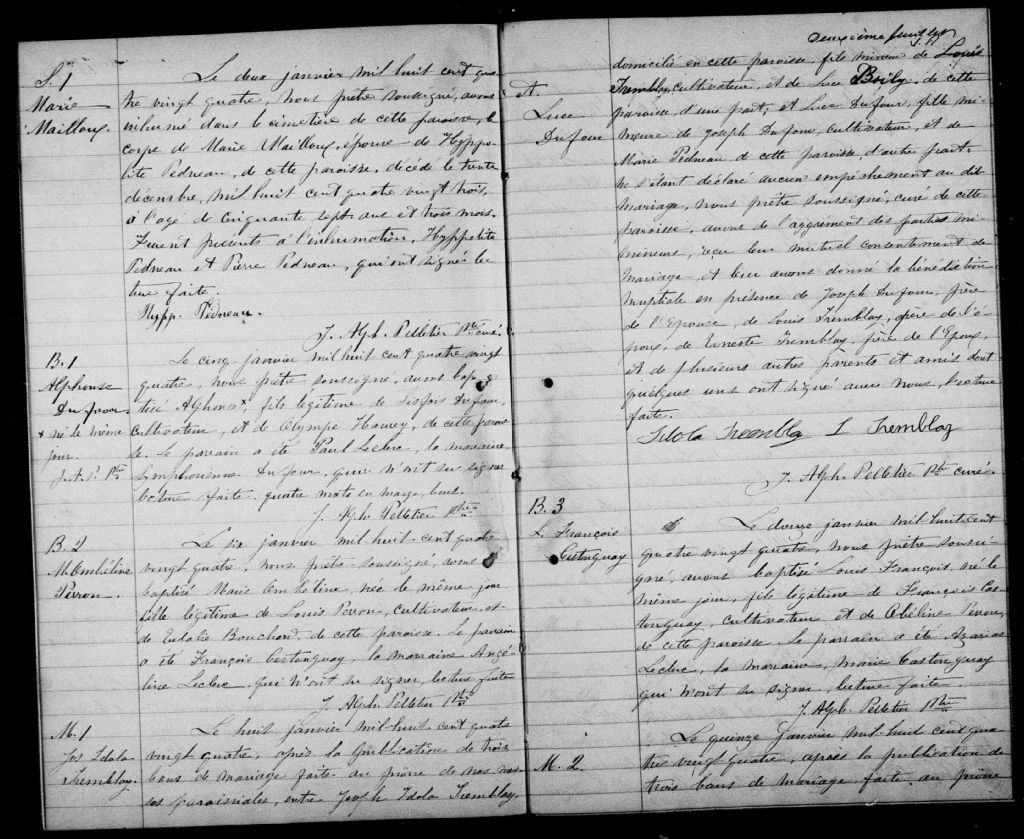 S. 1
Marie
Mailloux.
Le deux janvier mil huit cent qua-
tre vingt quatre, nous prêtre soussigné, avons
inhumé dans le cimetière de cette paroisse, le
corps de Marie Mailloux, épouse de Hyppo-
lite Pedneau, de cette paroisse, décédé le trente
décembre, mil huit cent quatre vingt trois,
à l'age de cinquante sept ans et trois mois.
Furent présents à l'inhumation, Hyppolite
Pedneau et Pierre Pedneau, qui ont signé lec-
ture faite.
Hypp. Pedneau.
J. Alph. Pelletier Ptre curé.
B. 1
Alphonse
Dufour
x né le même
jour.
J. A. P. Ptre
Le cinq janvier mil huit cent quatre vingt
quatre, nous prêtre soussigné, avons bap-
tisé Alphonse x, fils légitime de Dufour,
cultivateur, et de Olympe Harvey, de cette parois-
se. Le parrain a été Paul Leclerc, la marraine
Symphorienne Dufour, qui n'ont su signer
lecture faite. quatre mots en marge, bons.
J. Alph. Pelletier Ptre
B. 2
M. Ombéline
Perron.
Le six janvier mil huit-cent quatre
vingt quatre, nous prêtre soussigné, avons
baptisé Marie Ombéline, née le même jour
fille légitime de Louis Perron, cultivateur et
de Eulalie Bouchard, de cette paroisse. Le parrain
a été François Castonguay, la marraine Angé-
line Leclerc, qui n'ont su signer, lecture faite
J. Alph. Pelletier Ptre
M. 1
Jos Idola
Tremblay
Le huit janvier mil-huit-cent quatre
vingt quatre, après la publication de trois
bans de mariage faite au prône de nos mes-
ses paroissiales, entre Joseph Idola Tremblay,
deuxième feuillet
et
Luce
Dufour
domicilié en cette paroisse, fils mineur de Louis
Tremblay, cultivateur, et de Luce Boily, de cette
paroisse, d'une part; et Luce Dufour, fille mi-
neure de Joseph Dufour, cultivateur, et de
Marie Pedneau de cette paroisse, d'autre part,
ne s'étant déclaré aucun empêchement au dit
mariage, nous prêtre soussigné, curé de cette
paroisse, avons de l'aggrément des parties mi-
mineurs, reçu leur mutuel consentement de
mariage et leur avons donné la bénédiction
nuptiale en présence de Joseph Dufour, frère
de l'Epouse, de Louis Tremblay, père de l'é-
poux, de Erneste Tremblay, frère de l'Epoux,
et de plusieurs autres parents et amis dont
quelques uns ont signé avec nous, lecture
faite.
Idola Trembla L Tremblay
J. Alph. Pelletier Ptre curé.
B. 3
L. François
Castonguay
Le douze janvier mil huit cent
quatre vingt quatre, nous prêtre soussi-
gné, avons baptisé Louis François, né le
même jour, fils légitime de François Cas-
tonguay, cultivateur, et de Obéline Perron,
de cette paroisse. Le parrain a été Azarias
Leclerc, la marraine, Marie Castonguay
qui n'ont su signer, lecture faite
J. Alph. Pelletier Ptre
M. 2.
Le quinze janvier mil-huit cent qua-
tre vingt quatre, après la publication de
trois bans de mariage, faite au prône